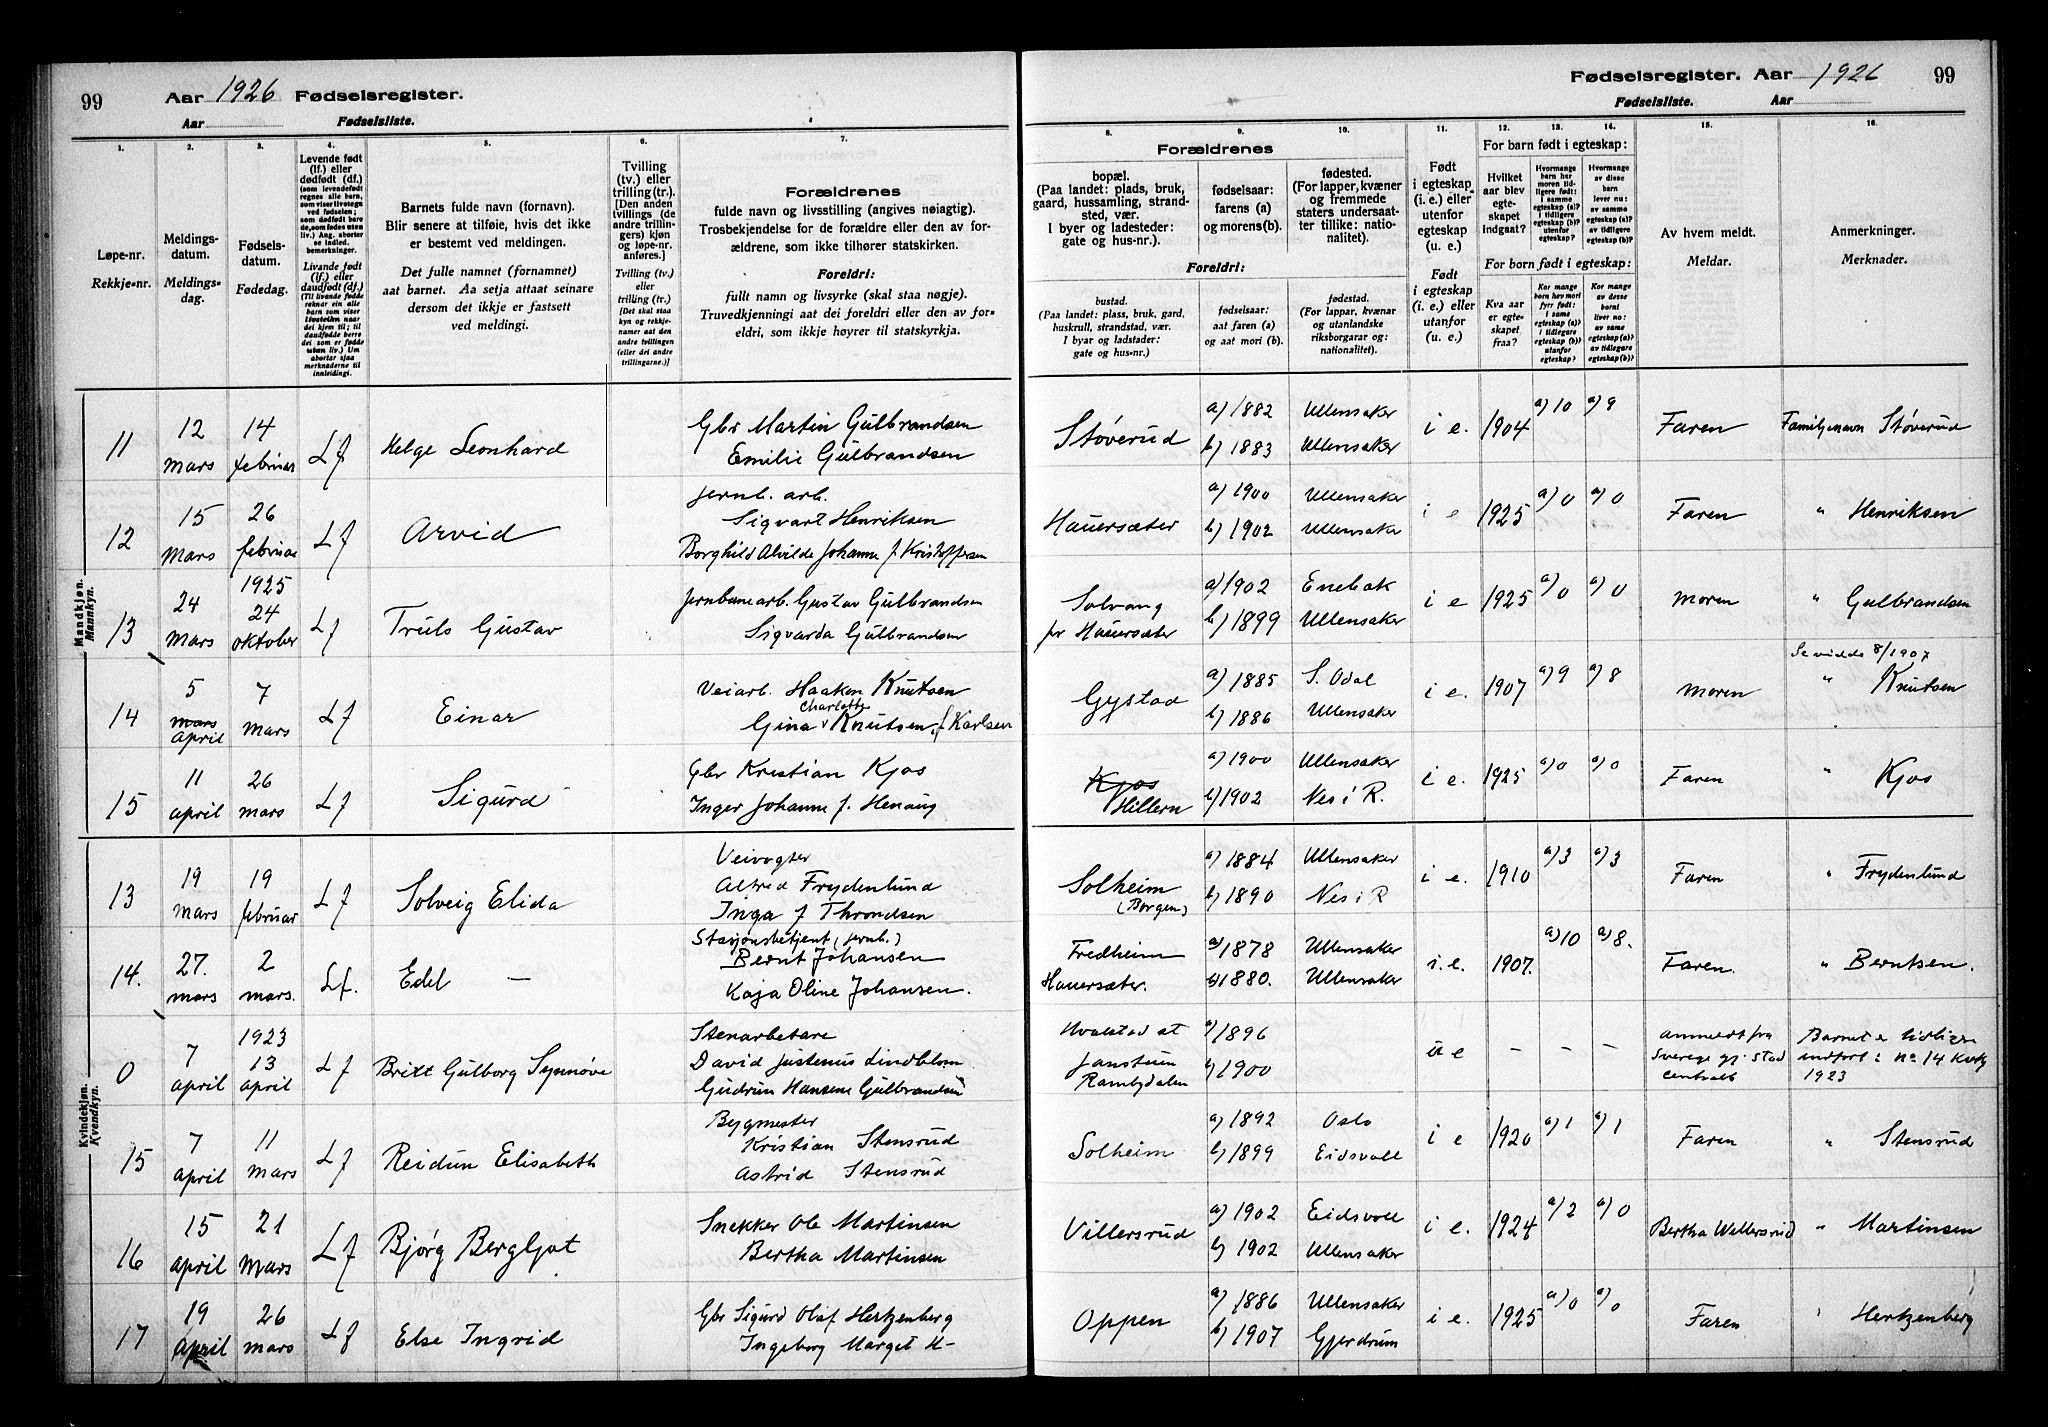 99 Aar 1926 Fødselsregister.
Aar Fødselsliste.
Fødselsregister. Aar 1926 99
Fødselsliste. Aar
1. 2. 3. 4. 5. 6. 7.
Løpe-nr.
Rekkje-nr.
Meldings-
datum.
Meldings-
dag.
Fødsels-
datum.
Fødedag.
Levende født
(lf.) eller
dødfødt (df.)
Livande født
(lf.) eller
daudfødt (df.)
Barnets fulde navn (fornavn).
Blir senere at tilføie, hvis det ikke
er bestemt ved meldingen.
Det fulle namnet (fornamnet)
aat barnet. Aa setja attaat seinare
dersom det ikkje er fastsett
ved meldingi.
Tvilling
(tv.) eller
trilling (tr.)
[Den anden
tvillings (de
andre trillin-
gers) kjøn
og løpe-nr.
anføres.]
Tvilling (tv.)
eller
trilling (tr.)
[Det skal staa
kyn og rekkje-
numer aat den
andre tvillingen
(eller dei andre
trillingarne.)]
Forældrenes
fulde navn og livsstilling (angives nøiagtig).
Trosbekjendelse for de forældre eller den av for-
ældrene, som ikke tilhører statskirken.
Foreldri:
fullt namn og livsyrke (skal staa nøgje).
Truvedkjenningi aat dei foreldri eller den av for-
eldri, som ikkje høyrer til statskyrkja.
8. 9. 10. 11. 12. 13. 14. 15. 16.
Forældrenes
bopæl.
(Paa landet: plads, bruk,
gaard, hussamling, strand-
sted, vær.
I byer og ladesteder:
gate og hus-nr.).
fødselsaar:
farens (a)
og morens (b).
fødested.
(For lapper, kvæner
og fremmede
staters undersaat-
ter tillike: natio-
nalitet).
Foreldri:
bustad.
(Paa landet: plass, bruk, gard,
huskrull, strandstad, vær.
I byar og ladstader:
gate og hus-nr.)
fødselsaar:
aat faren (a)
og aat mori (b).
fødestad.
(For lappar, kvænar
og utanlandske
riksborgarar og:
nationalitet).
Født
i egteskap
(i. e.) eller
utenfor
egteskap
(u. e.)
Født
i egteskap
(i. e.) eller
utanfor
(u. e.)
For barn født i egteskap:
Hvilket
aar blev
egte-
skapet
indgaat?
For born født i egteskap:
Kva aar
er egte-
skapet
fraa?
Av hvem meldt.
Meldar.
Anmerkninger.
Merknader.
Mandkjøn.
Mannkyn.
11 12 mars 14 februar Lf Helge Leonhard Gbr Martin Gulbrandsen Emilie Gulbrandsen Støverud a) 1882 b) 1883 Ullensaker Ullensaker i e. 1904 a) 10 a) 9 Faren Familjenavn Støverud
12 15 mars 26 februar Lf Arvid Jernb. arb. Sigvart Henriksen Borghild Alvilde Johanne f. Kristoffersen Hauersæter a) 1900 b) 1902 Ullensaker Ullensaker i e 1925 a) 0 a) 0 Faren " Henriksen
13 24 mars 1925 24 oktober Lf Truls Gustav Jernbanearb. Gustav Gulbrandsen Sigvarda Gulbrandsen Solvang pr Hauersæter a) 1902 b) 1899 Enebak Ullensaker i e 1925 a) 0 a) 0 Moren " Gulbrandsen
14 5 mars april 7 mars Lf Einar Veiarb. Haakon Knutsen Gina Charlotte Knutsen, f Karlsen Gystad a) 1885 b) 1886 S. Odal Ullensaker i e. 1907 a) 9 a) 8 Moren Se vidde 8/1907 " Knutsen
15 11 april 26 mars Lf Sigurd Gbr Kristian Kjos Inger Johanne f. Henaug Kjos Hillern a) 1900 b) 1902 Ullensaker Nes i R. i e. 1925 a) 0 a) 0 Faren " Kjos
Kvindekjøn.
Kvendkyn.
13 19 mars 19 februar Lf Solveig Elida Veivogter Alfred Frydenlund Inga f Throndsen Solheim (Borgen) a) 1884 b) 1890 Ullensaker Nes i R i e. 1910 a) 3 a) 3 Faren " Frydenlund
14. 27. mars 2 mars. Lf. Edel — Stasjonsbetjent (jernb.) Bernt Johansen Kaja Oline Johansen. Fredheim Hauersæter. a) 1878 b) 1880. Ullensaker Ullensaker i. e. 1907. a) 10 a) 8. Faren. " Berntsen.
0 7 april 1923 13 april Lf Britt Gulborg Synnøve Stenarbetare David Justenus Lindblom Gudrun Hansine Gulbrandsen Hvalstad st a) 1896 b) 1900 u e — — — anmeldt fra Sverige gj. stad centralb Barnet e tidligere indført i no 14 Kvkj 1923
15 7 april 11 mars Lf Reidun Elisabeth Bygmester Kristian Stensrud Astrid Stensrud Solheim a) 1892 b) 1899 Oslo Eidsvoll i e 1920 a) 1 a) 1 Faren " Stensrud
16 15 april 21 mars Lf Bjørg Bergljot Snekker Ole Martinsen Bertha Martinsen Villersrud a) 1902 b) 1902 Eidsvoll Ullensaker i e. 1924 a) 2 a) 0 Bertha Willersrud " Martinsen
17 19 april 26 mars Lf Else Ingrid Gbr Sigurd Olaf Hertzenberg Ingeborg Marget H- Oppen a) 1886 b) 1907 Ullensaker Gjerdrum i e. 1925 a) 0 a) 0 Faren " Hertzenberg